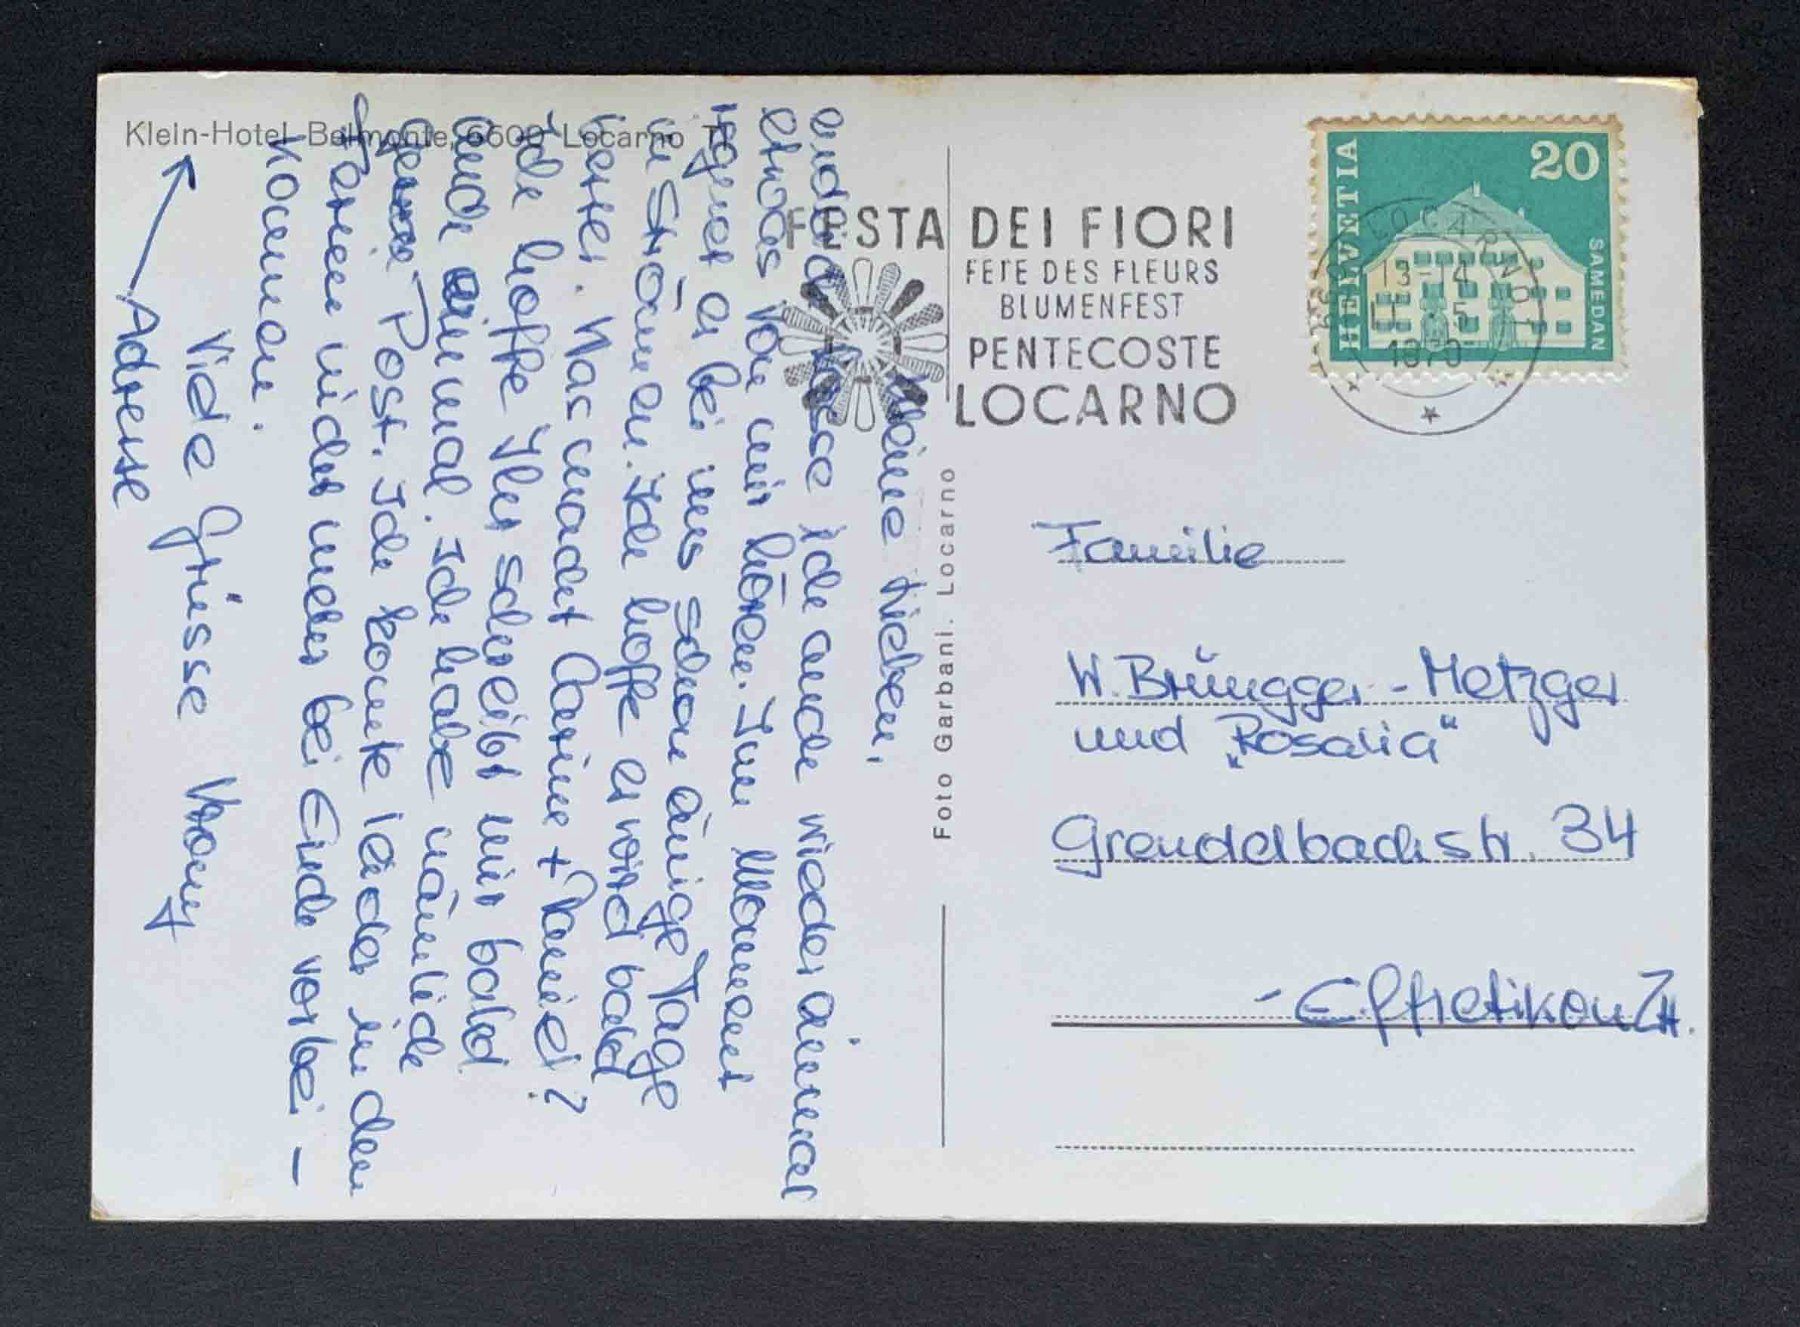 Klein-Hotel Belmonte, 6600 Locarno TI
FESTA DEI FIORI
FETE DES FLEURS
BLUMENFEST
PENTECOSTE
LOCARNO
HELVETIA
20
SAMEDAN
LOCARNO 1
13-14
11.-5
1970
Foto Garbani. Locarno
Meine Lieben,
endlich lasse ich auch wieder einmal
etwas von mir hören. Im Moment
regnet es bei uns schon einige Tage
in Strömen. Ich hoffe es wird bald
besser. Was macht Carine + Daniel?
Ich hoffe Ihr schreibt mir bald
auch einmal. Ich habe nämlich
gerne Post. Ich konnte leider in den
Ferien nicht mehr bei Euch vorbei-
kommen.
Viele Grüsse Vrony
Adresse
Familie
W. Brüngger-Metzger
und „Rosalia“
Grendelbachstr. 34
- Effretikon ZH.